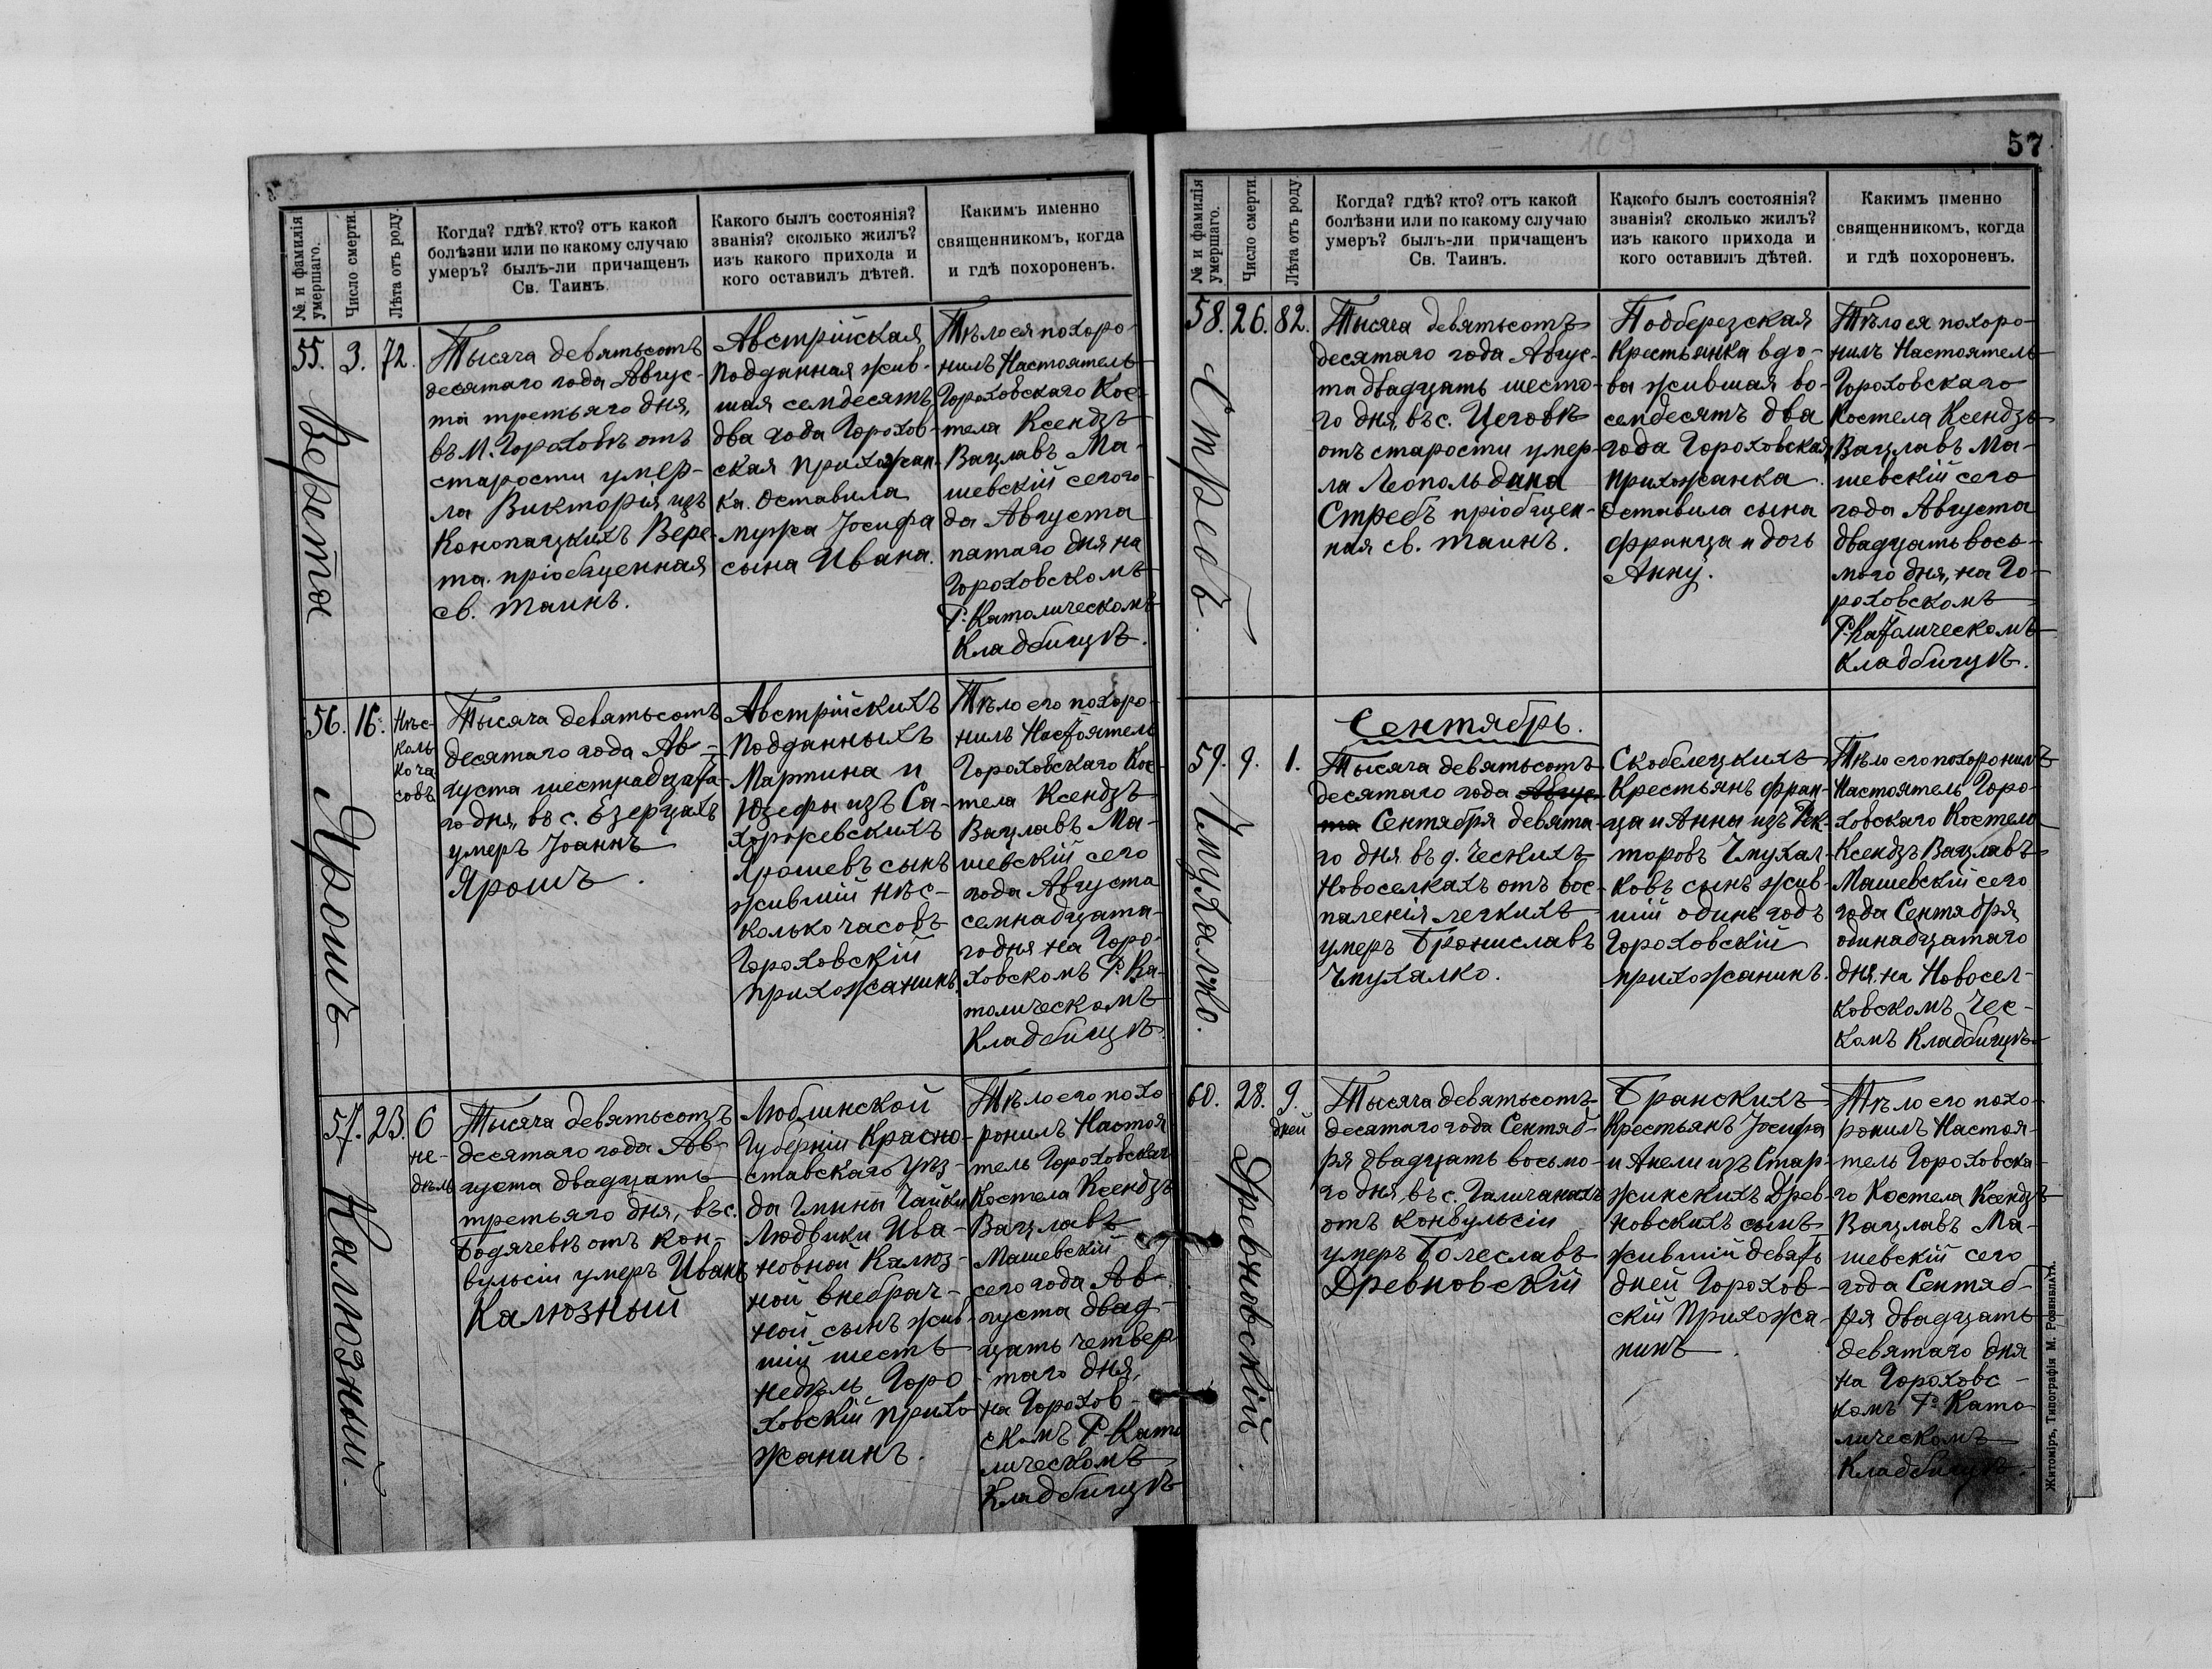 57
109
№ и фамилія
умершаго.
Число смерти.
Лѣта отъ роду.
Когда? гдѣ? кто? отъ какой
болѣзни или по какому случаю
умеръ? былъ-ли причащенъ
Св. Таинъ.
Какого былъ состоянія?
званія? сколько жилъ?
изъ какого прихода и
кого оставилъ дѣтей.
Какимъ именно
священникомъ, когда
и гдѣ похороненъ.
55.
Верета
3.
72.
Тысяча девятьсотъ
десятаго года Авгус-
та третьяго дня,
въ М. Гороховѣ отъ
старости умер-
ла Викторія изъ
Конопацкихъ Вере-
та. пріобщенная
св. таинъ.
Австрійская
подданная жив-
шая семдесятъ
два года Горохов-
ская прихожан-
ка. Оставила
мужа Іосифа
сына Ивана.
Тѣло ея похоро-
нилъ Настоятель
Гороховскаго Кос-
тела Ксендзъ
Вацлавъ Ма-
шевскій сего го-
да Августа
пятаго дня на
Гороховскомъ
Р. Католическомъ
Кладбищѣ.
56.
Ярошъ
16.
Нѣс-
коль
ко ча
совъ
Тысяча девятьсотъ
десятаго года Ав-
густа шестнадцата-
го дня, въ с. Езерцахъ
умеръ Іоаннъ
Ярошъ.
Австрійскихъ
подданныхъ
Мартина и
Юзефы изъ Са-
хоржевскихъ
Ярошевъ сынъ
жившій нѣс-
колько часовъ
Гороховскій
прихожанинъ.
Тѣло его похоро-
нилъ Настоятель
Гороховскаго Кос-
тела Ксендзъ
Вацлавъ Ма-
шевскій сего
года Августа
семнадцата-
го дня на Горо-
ховскомъ Р. Ка-
толическомъ
Кладбищѣ.
57.
Калюзный.
23.
6
не-
дѣль
Тысяча девятьсотъ
десятаго года Ав-
густа двадцать
третьяго дня, въ с.
Бодячевѣ отъ кон-
вульсіи умеръ Иванъ
Калюзный
Люблинской
Губерніи Красно-
ставскаго Уѣз-
да Гмины Чайки
Людвики Ива-
новной Калюз-
ной внебрач-
ной сынъ жив-
шій шесть
недѣль Горо-
ховскій прихо
жанинъ.
Тѣло его похо
ронилъ Настоя
тель Гороховскаго
Костела Ксендзъ
Вацлавъ
Машевскій
сего года Ав-
густа двад-
цать четвер
таго дня,
на Горохов-
скомъ Р. Като
лическомъ
Кладбищѣ
№ и фамилія
умершаго.
Число смерти.
Лѣта отъ роду.
Когда? гдѣ? кто? отъ какой
болѣзни или по какому случаю
умеръ? былъ-ли причащенъ
Св. Таинъ.
Какого былъ состоянія?
званія? сколько жилъ?
изъ какого прихода и
кого оставилъ дѣтей.
Какимъ именно
священникомъ, когда
и гдѣ похороненъ.
58.
Стребъ.
26.
82.
Тысяча девятьсотъ
десятаго года Авгус-
та двадцать шесто-
го дня, въ с. Цеговѣ
отъ старости умер-
ла Леопольдина
Стребъ пріобщен-
ная св. таинъ.
Подберезская
Крестьянка вдо-
ва жившая во-
семдесятъ два
года Гороховская
прихожанка.
Оставила сына
Франца и дочь
Анну.
Тѣло ея похоро-
нилъ Настоятель
Гороховскаго
Костела Ксендзъ
Вацлавъ Ма-
шевскій сего
года Августа
двадцать вось-
мого дня, на Го-
роховскомъ
Р. Католическомъ
Кладбищѣ.
Сентябрь.
59.
Чмухалко.
9.
1.
Тысяча девятьсотъ
десятаго года Авгус-
та Сентября девята-
го дня въ д. Ческихъ
Новоселкахъ отъ вос-
паленія легкихъ
умеръ Брониславъ
Чмухалко.
Скобелецкихъ
Крестьянъ Фран-
ца и Анны изъ Рек-
торовъ Чмухал-
ковъ сынъ жив-
шій одинъ годъ
Гороховскій
прихожанинъ.
Тѣло его похоронилъ
Настоятель Горо-
ховскаго Костела
Ксендзъ Вацлавъ
Машевскій сего
года Сентября
одинадцатаго
дня на Новосел-
ковскомъ Чес-
комъ Кладбищѣ.
60.
Древновскій.
28.
9.
дней
Тысяча девятьсотъ
десятаго года Сентяб-
ря двадцать восьмо-
го дня, въ с. Галичанахъ
отъ конвульсіи
умеръ Болеславъ
Древновскій
Бранскихъ
Крестьянъ Іосифа
и Анели изъ Стар-
жинскихъ Древ-
новскихъ сынъ
жившій девять
дней Горохов-
скій Прихожа-
нинъ.
Тѣло его похо-
ронилъ Настоя-
тель Гороховска-
го Костела Ксендзъ
Вацлавъ Ма-
шевскій сего
года Сентяб-
ря двадцать
девятаго дня
на Гороховс-
комъ Р. Като
лическомъ
Кладбищѣ.
Житоміръ, Типографія М. Розенблата.